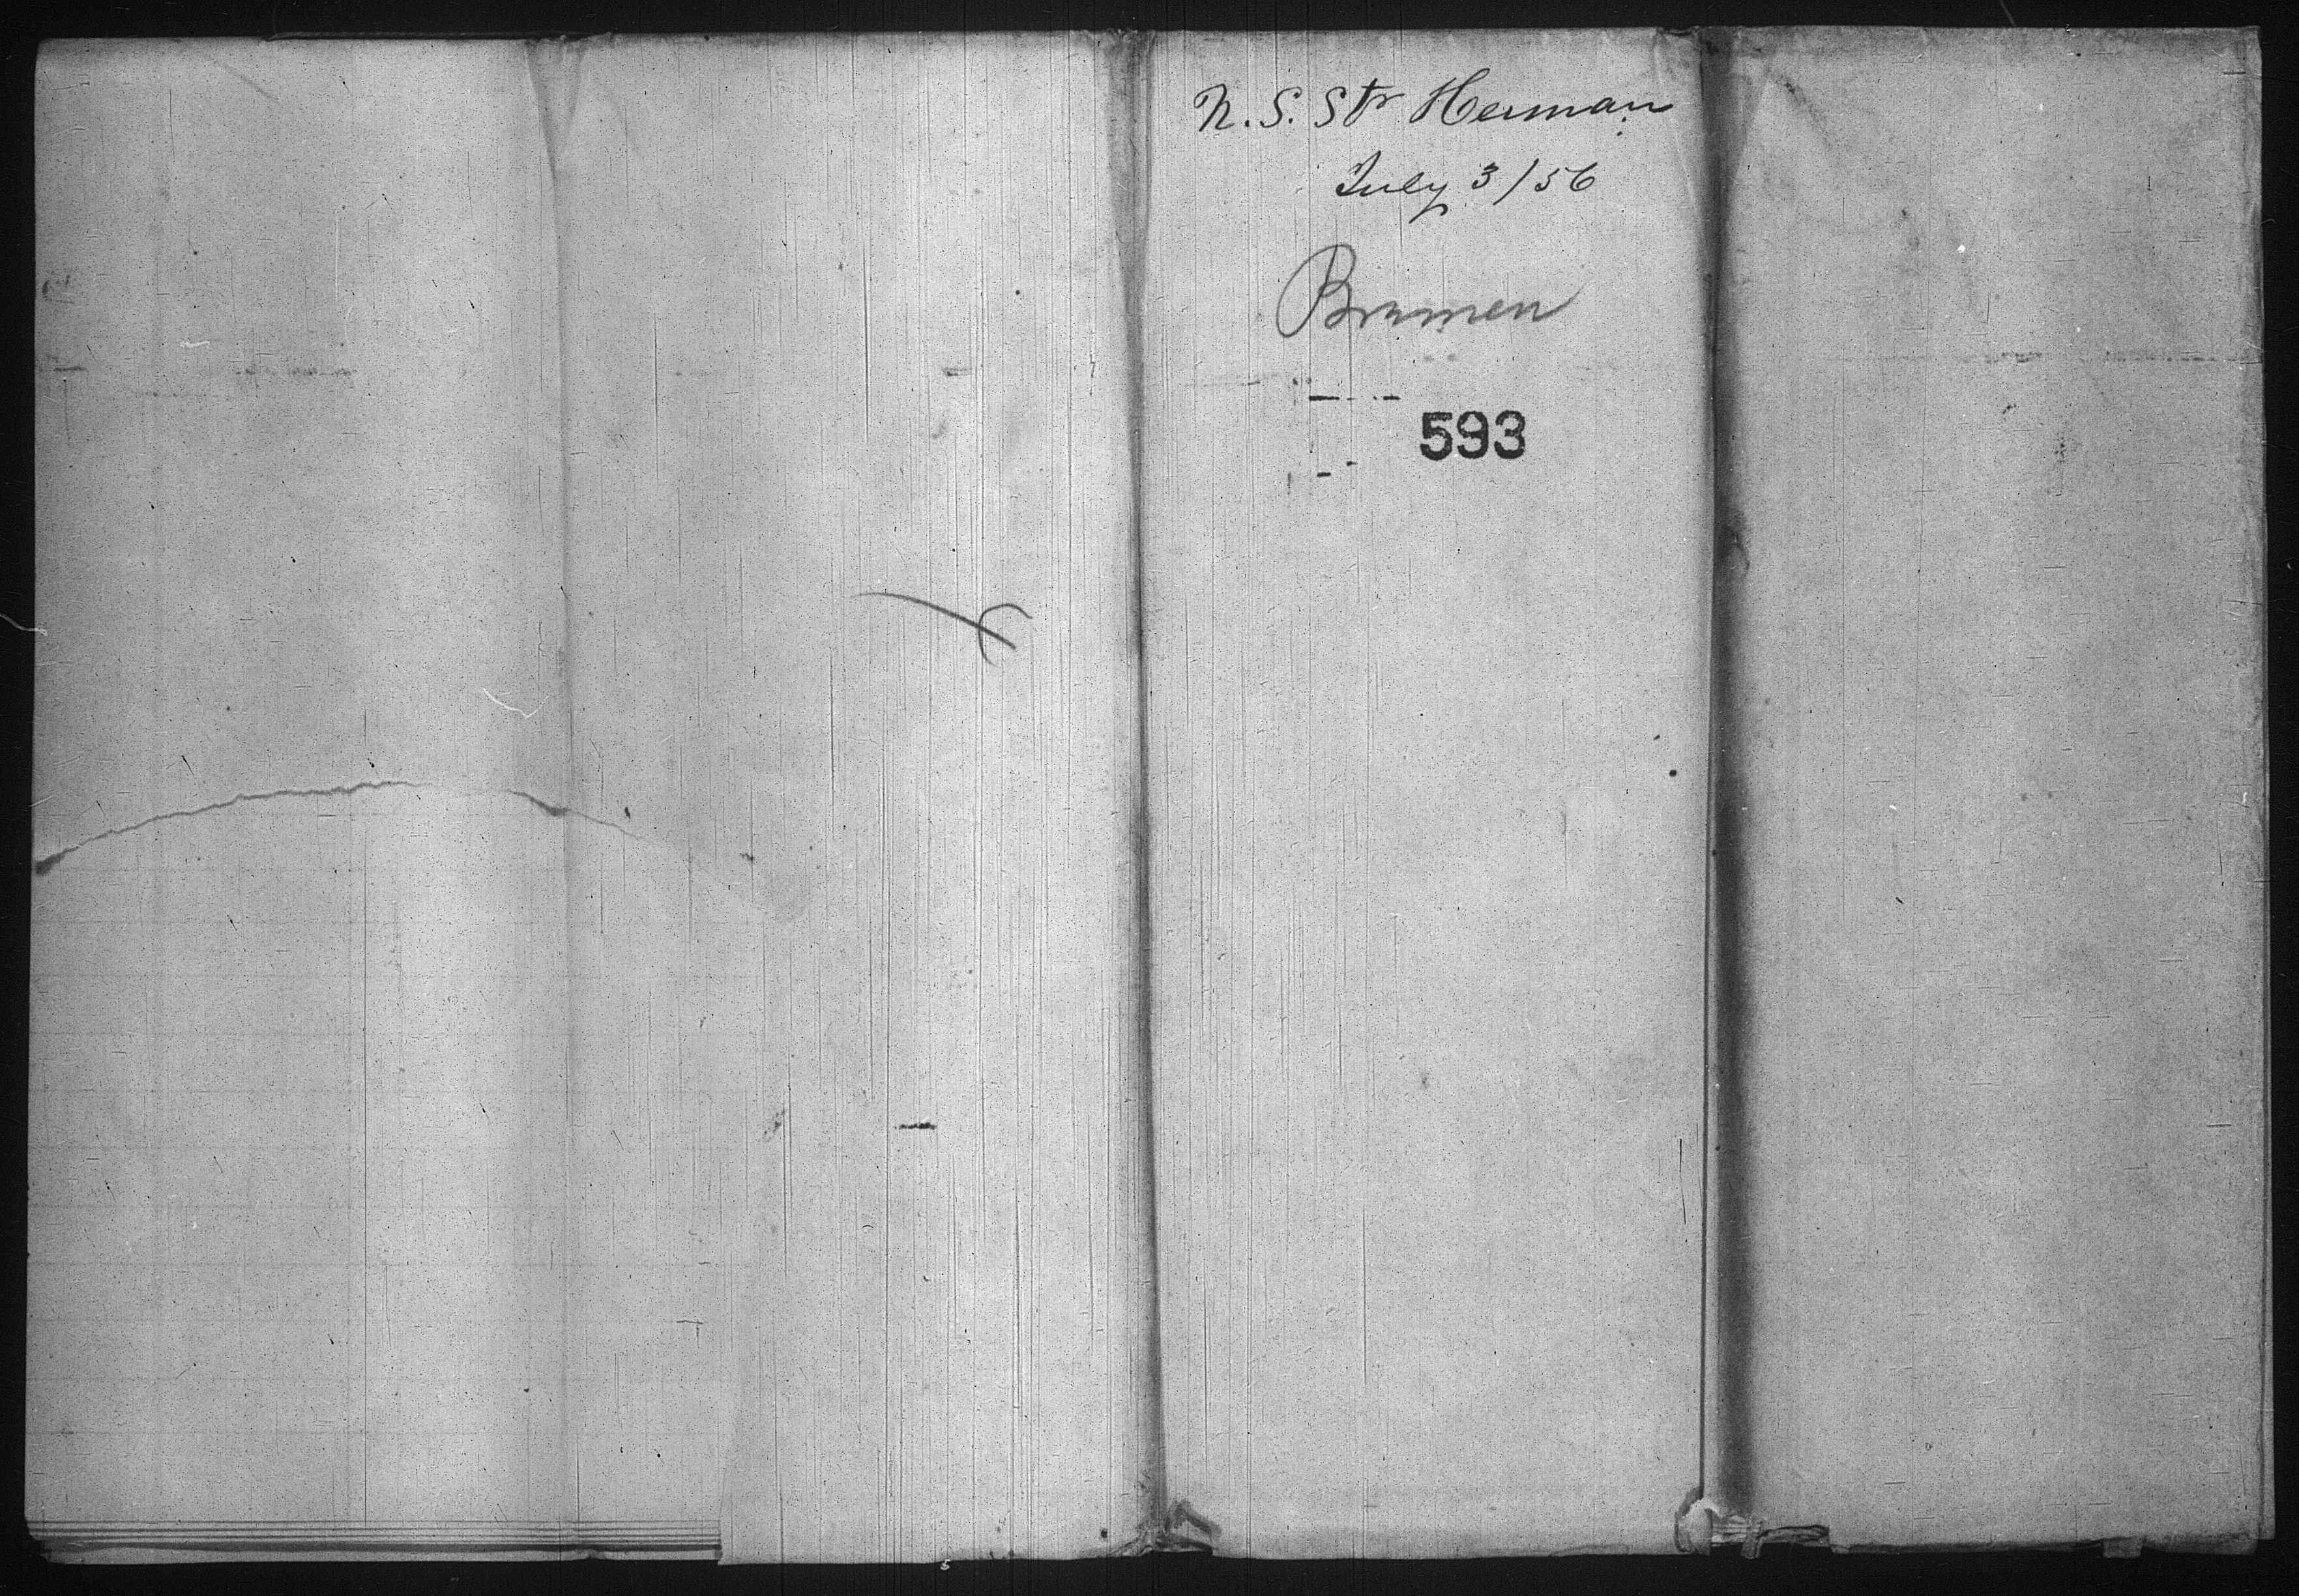 U.S. Str Herman
July 3/56
Bremen
593